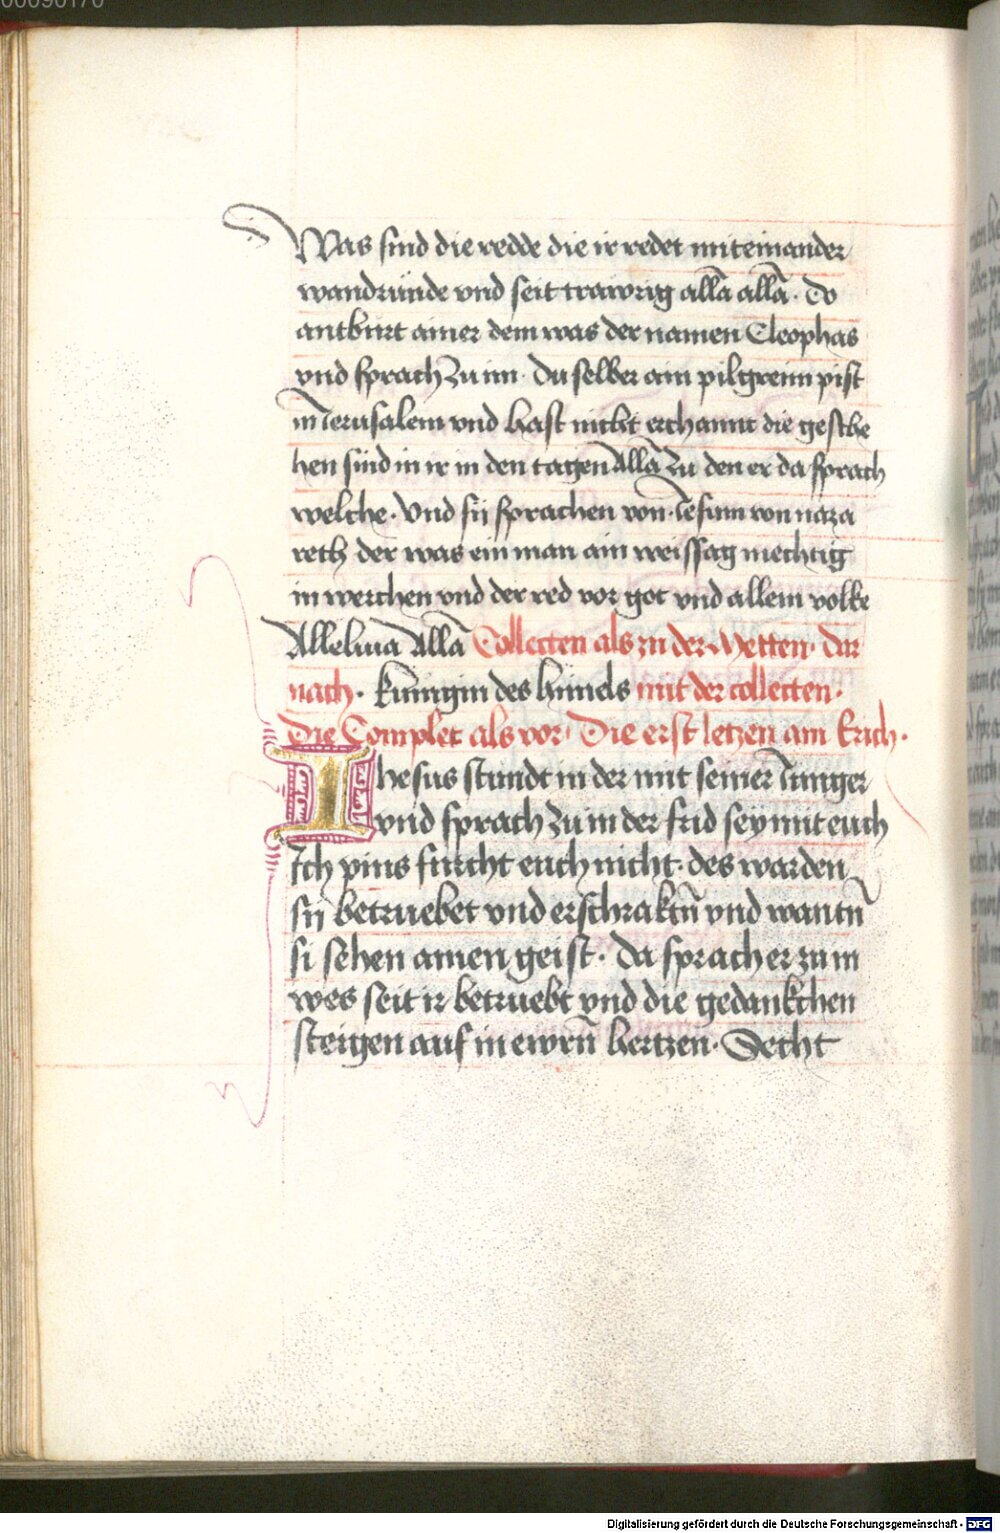 00090170
Was sind die redde die ir redet miteinander
wandrunde vnd seit trawrig allā allā. Do
antburt ainer dem was der namen Cleophas
vnd sprach zu im. du selber ain pilgreim pist
in Ierusalem vnd hast nicht erchannt die gesche
hen sind in ir in den tagen Allā zu den er da sprach
welche. Vnd sÿ sprachen von Iesum von naza
reth der was ein man ain weissag mechtig
in werchen vnd der red vor got vnd allem volke
Alleluia Allā Collecten als zu der Metten. dar
nach. kunigin des himels mit der collecten.
Die Complet als vor. Die erst letzen am Erich.
Ihesus stundt in der mit seiner Iunger
vnd sprach zu in der frid seÿ mit euch
Ich pins furcht euch nicht. des warden
sÿ betruebet vnd erschraktn̄ vnd wantn̄
si sehen ainen geist. da sprach er zu in
wes seit ir betruebt vnd die gedankchen
steigen auf in ewrn̄ hertzen. Secht
Digitalisierung gefördert durch die Deutsche Forschungsgemeinschaft - DFG